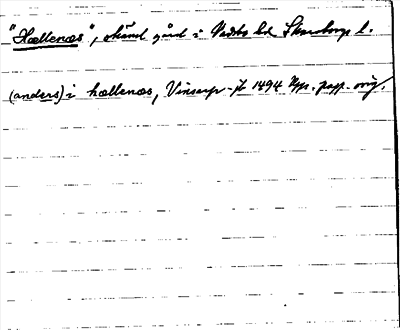 "Hællenæs", okänd gård i Vadsbo hd Skaraborgs l.
(anders) i hællenæs, Vinsarp 1494 papp. orig.